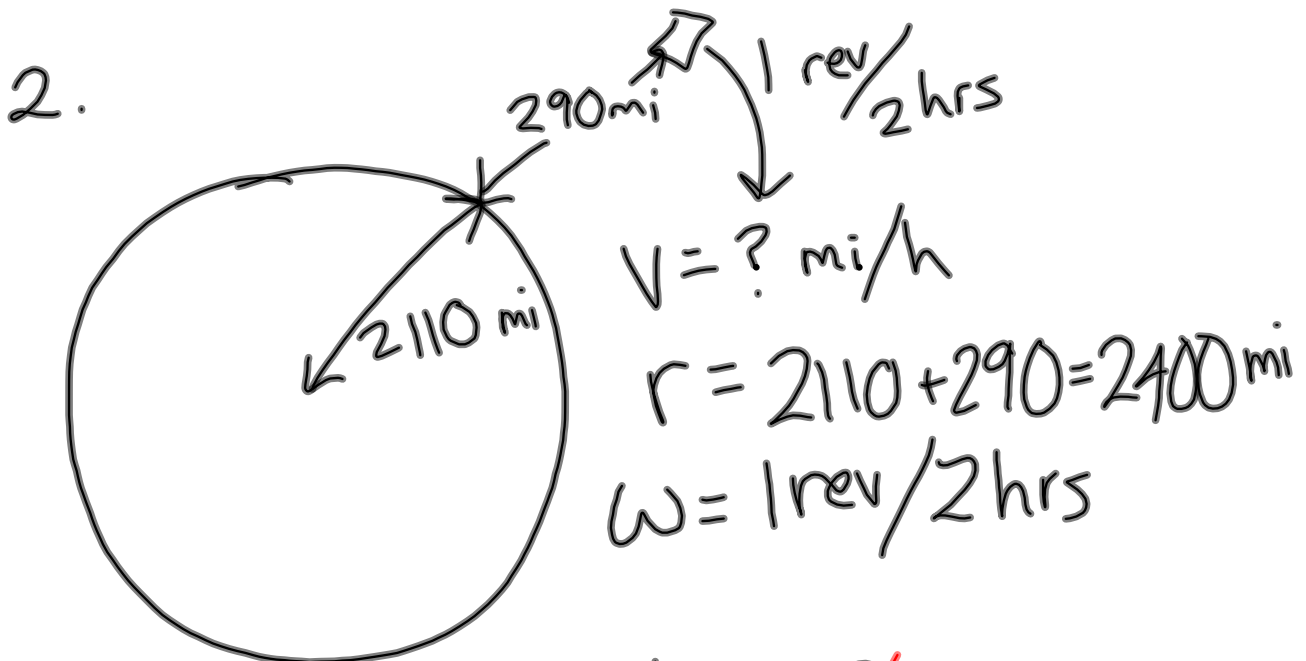 2.
290mi
1 rev/2 hrs
2110 mi
V = ? mi/h
r = 2110 + 290 = 2400 mi
ω = 1rev/2hrs